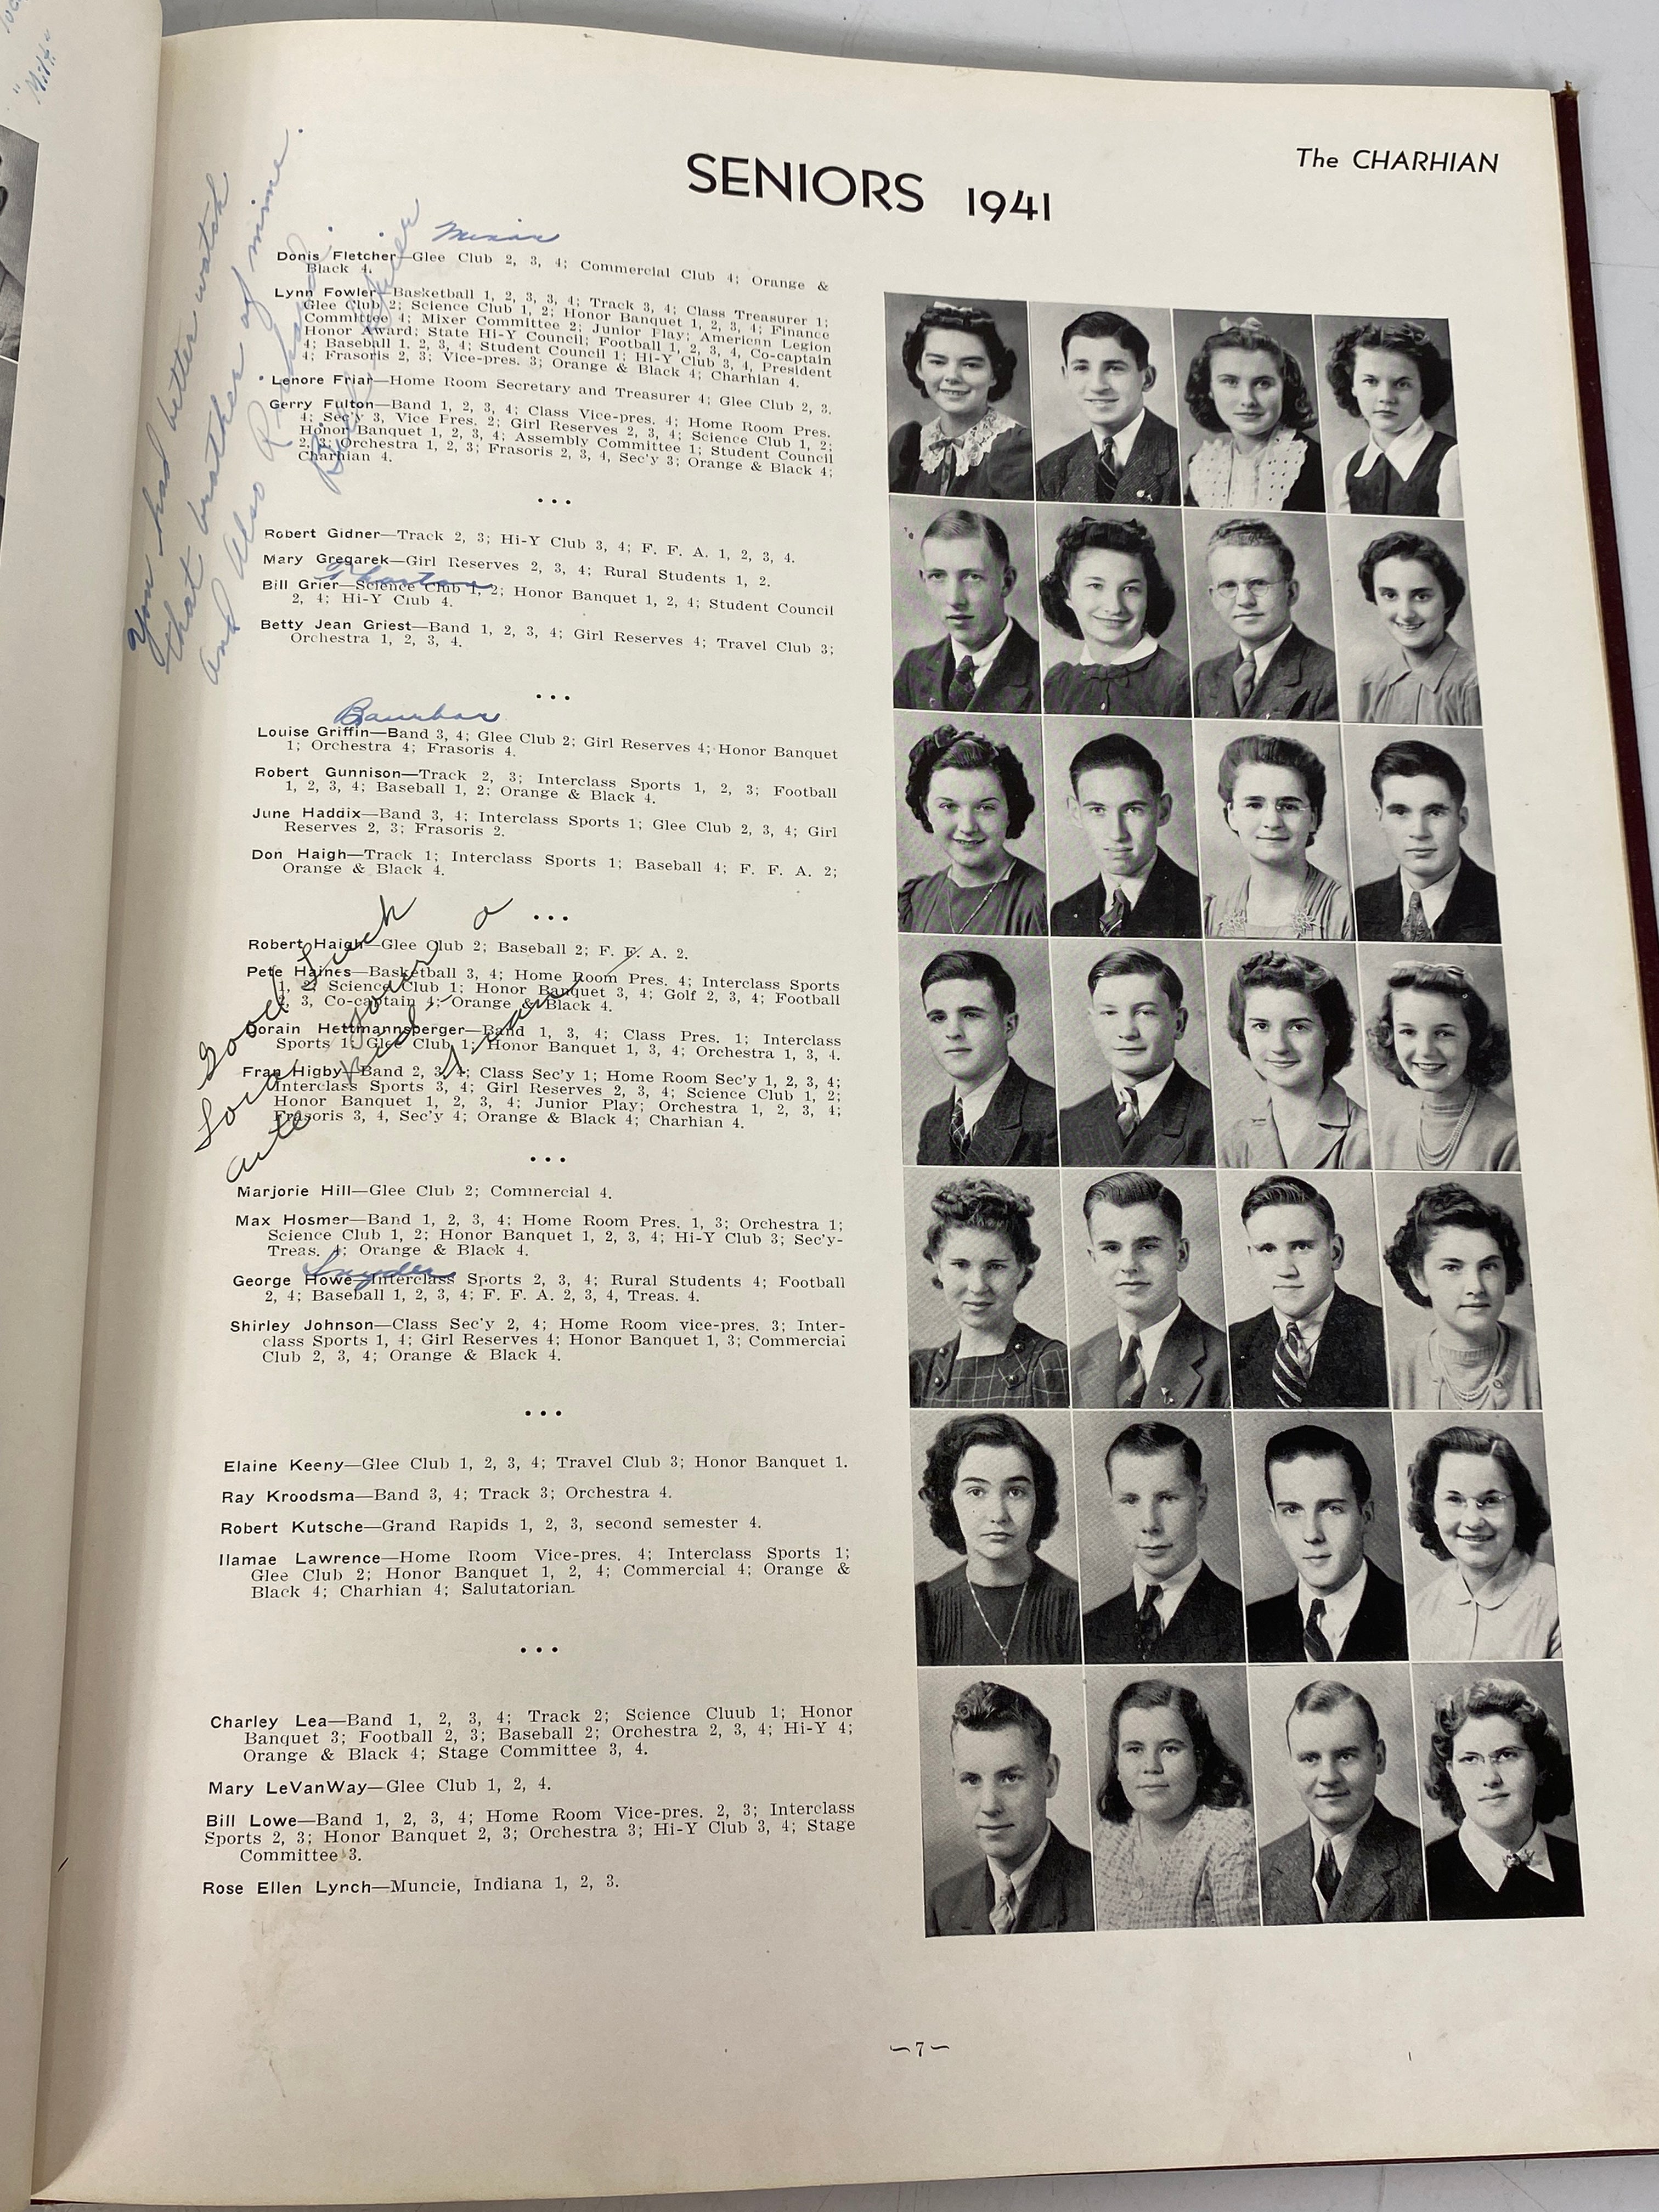 The CHARHIAN
SENIORS 1941
Donis Fletcher—Glee Club 2, 3, 4; Commercial Club 4; Orange &
Black 4.
Lynn Fowler—Basketball 1, 2, 3, 3, 4; Track 3, 4; Class Treasurer 1;
Glee Club 2; Science Club 1, 2; Honor Banquet 1, 2, 3, 4; Finance
Committee 4; Mixer Committee 2; Junior Play; American Legion
Honor Award; State Hi-Y Council; Football 1, 2, 3, 4, Co-captain
4; Baseball 1, 2, 3, 4; Student Council 1; Hi-Y Club 3, 4, President
4; Frasoris 2, 3; Vice-pres. 3; Orange & Black 4; Charhian 4.
Lenore Friar—Home Room Secretary and Treasurer 4; Glee Club 2, 3.
Gerry Fulton—Band 1, 2, 3, 4; Class Vice-pres. 4; Home Room Pres.
4; Sec'y 3, Vice Pres. 2; Girl Reserves 2, 3, 4; Science Club 1, 2;
Honor Banquet 1, 2, 3, 4; Assembly Committee 1; Student Council
2, 3; Orchestra 1, 2, 3; Frasoris 2, 3, 4, Sec'y 3; Orange & Black 4;
Charhian 4.
• • •
Robert Gidner—Track 2, 3; Hi-Y Club 3, 4; F. F. A. 1, 2, 3, 4.
Mary Gregarek—Girl Reserves 2, 3, 4; Rural Students 1, 2.
Bill Grier—Science Club 1, 2; Honor Banquet 1, 2, 4; Student Council
2, 4; Hi-Y Club 4.
Betty Jean Griest—Band 1, 2, 3, 4; Girl Reserves 4; Travel Club 3;
Orchestra 1, 2, 3, 4.
• • •
Louise Griffin—Band 3, 4; Glee Club 2; Girl Reserves 4; Honor Banquet
1; Orchestra 4; Frasoris 4.
Robert Gunnison—Track 2, 3; Interclass Sports 1, 2, 3; Football
1, 2, 3, 4; Baseball 1, 2; Orange & Black 4.
June Haddix—Band 3, 4; Interclass Sports 1; Glee Club 2, 3, 4; Girl
Reserves 2, 3; Frasoris 2.
Don Haigh—Track 1; Interclass Sports 1; Baseball 4; F. F. A. 2;
Orange & Black 4.
• • •
Robert Haigh—Glee Club 2; Baseball 2; F. F. A. 2.
Pete Haines—Basketball 3, 4; Home Room Pres. 4; Interclass Sports
1, 2; Science Club 1; Honor Banquet 3, 4; Golf 2, 3, 4; Football
2, 3, Co-captain 4; Orange & Black 4.
Dorain Hettmannsperger—Band 1, 3, 4; Class Pres. 1; Interclass
Sports 1; Glee Club 1; Honor Banquet 1, 3, 4; Orchestra 1, 3, 4.
Fran Higby—Band 2, 3, 4; Class Sec'y 1; Home Room Sec'y 1, 2, 3, 4;
Interclass Sports 3, 4; Girl Reserves 2, 3, 4; Science Club 1, 2;
Honor Banquet 1, 2, 3, 4; Junior Play; Orchestra 1, 2, 3, 4;
Frasoris 3, 4, Sec'y 4; Orange & Black 4; Charhian 4.
• • •
Marjorie Hill—Glee Club 2; Commercial 4.
Max Hosmer—Band 1, 2, 3, 4; Home Room Pres. 1, 3; Orchestra 1;
Science Club 1, 2; Honor Banquet 1, 2, 3, 4; Hi-Y Club 3; Sec'y-
Treas. 4; Orange & Black 4.
George Howe—Interclass Sports 2, 3, 4; Rural Students 4; Football
2, 4; Baseball 1, 2, 3, 4; F. F. A. 2, 3, 4, Treas. 4.
Snyder
Shirley Johnson—Class Sec'y 2, 4; Home Room vice-pres. 3; Inter-
class Sports 1, 4; Girl Reserves 4; Honor Banquet 1, 3; Commercial
Club 2, 3, 4; Orange & Black 4.
• • •
Elaine Keeny—Glee Club 1, 2, 3, 4; Travel Club 3; Honor Banquet 1.
Ray Kroodsma—Band 3, 4; Track 3; Orchestra 4.
Robert Kutsche—Grand Rapids 1, 2, 3, second semester 4.
Ilamae Lawrence—Home Room Vice-pres. 4; Interclass Sports 1;
Glee Club 2; Honor Banquet 1, 2, 4; Commercial 4; Orange &
Black 4; Charhian 4; Salutatorian.
• • •
Charley Lea—Band 1, 2, 3, 4; Track 2; Science Cluub 1; Honor
Banquet 3; Football 2, 3; Baseball 2; Orchestra 2, 3, 4; Hi-Y 4;
Orange & Black 4; Stage Committee 3, 4.
Mary LeVanWay—Glee Club 1, 2, 4.
Bill Lowe—Band 1, 2, 3, 4; Home Room Vice-pres. 2, 3; Interclass
Sports 2, 3; Honor Banquet 2, 3; Orchestra 3; Hi-Y Club 3, 4; Stage
Committee 3.
Rose Ellen Lynch—Muncie, Indiana 1, 2, 3.
You had better watch
that brother of mine.
and also Richard.
Good Luck
to a
cute
7